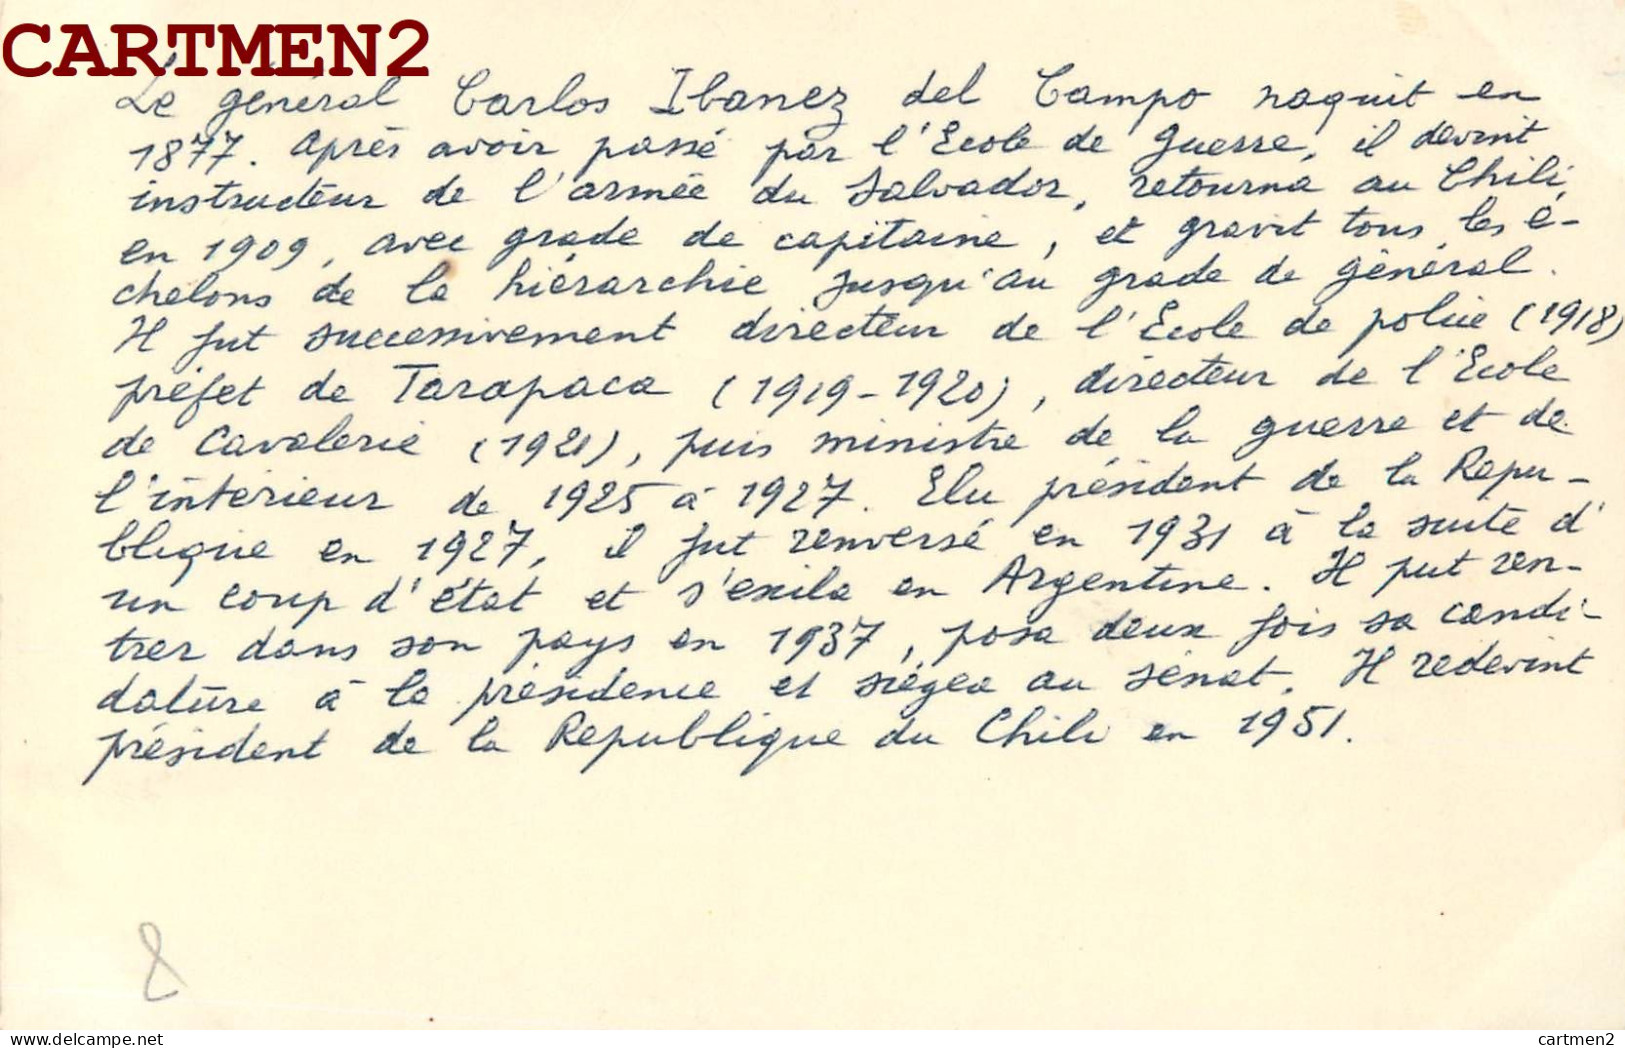 CARTMEN2
Le général Carlos Ibanez del Campo naquit en
1877. Après avoir passé par l'Ecole de Guerre, il devint
instructeur de l'armée du Salvador, retourna au Chili,
en 1909, avec grade de capitaine, et gravit tous les é-
chelons de la hiérarchie jusqu'au grade de général.
Il fut successivement directeur de l'Ecole de police (1918)
préfet de Tarapaca (1919-1920), directeur de l'Ecole
de Cavalerie (1921), puis ministre de la guerre et de
l'intérieur de 1925 à 1927. Elu président de la Repu-
blique en 1927, il fut renversé en 1931 à la suite d'
un coup d'état et s'exila en Argentine. Il put ren-
trer dans son pays en 1937, posa deux fois sa candi-
dature à la présidence et siégea au sénat. Il redevint
président de la Republique du Chili en 1951.
8
delcampe.net
cartmen2